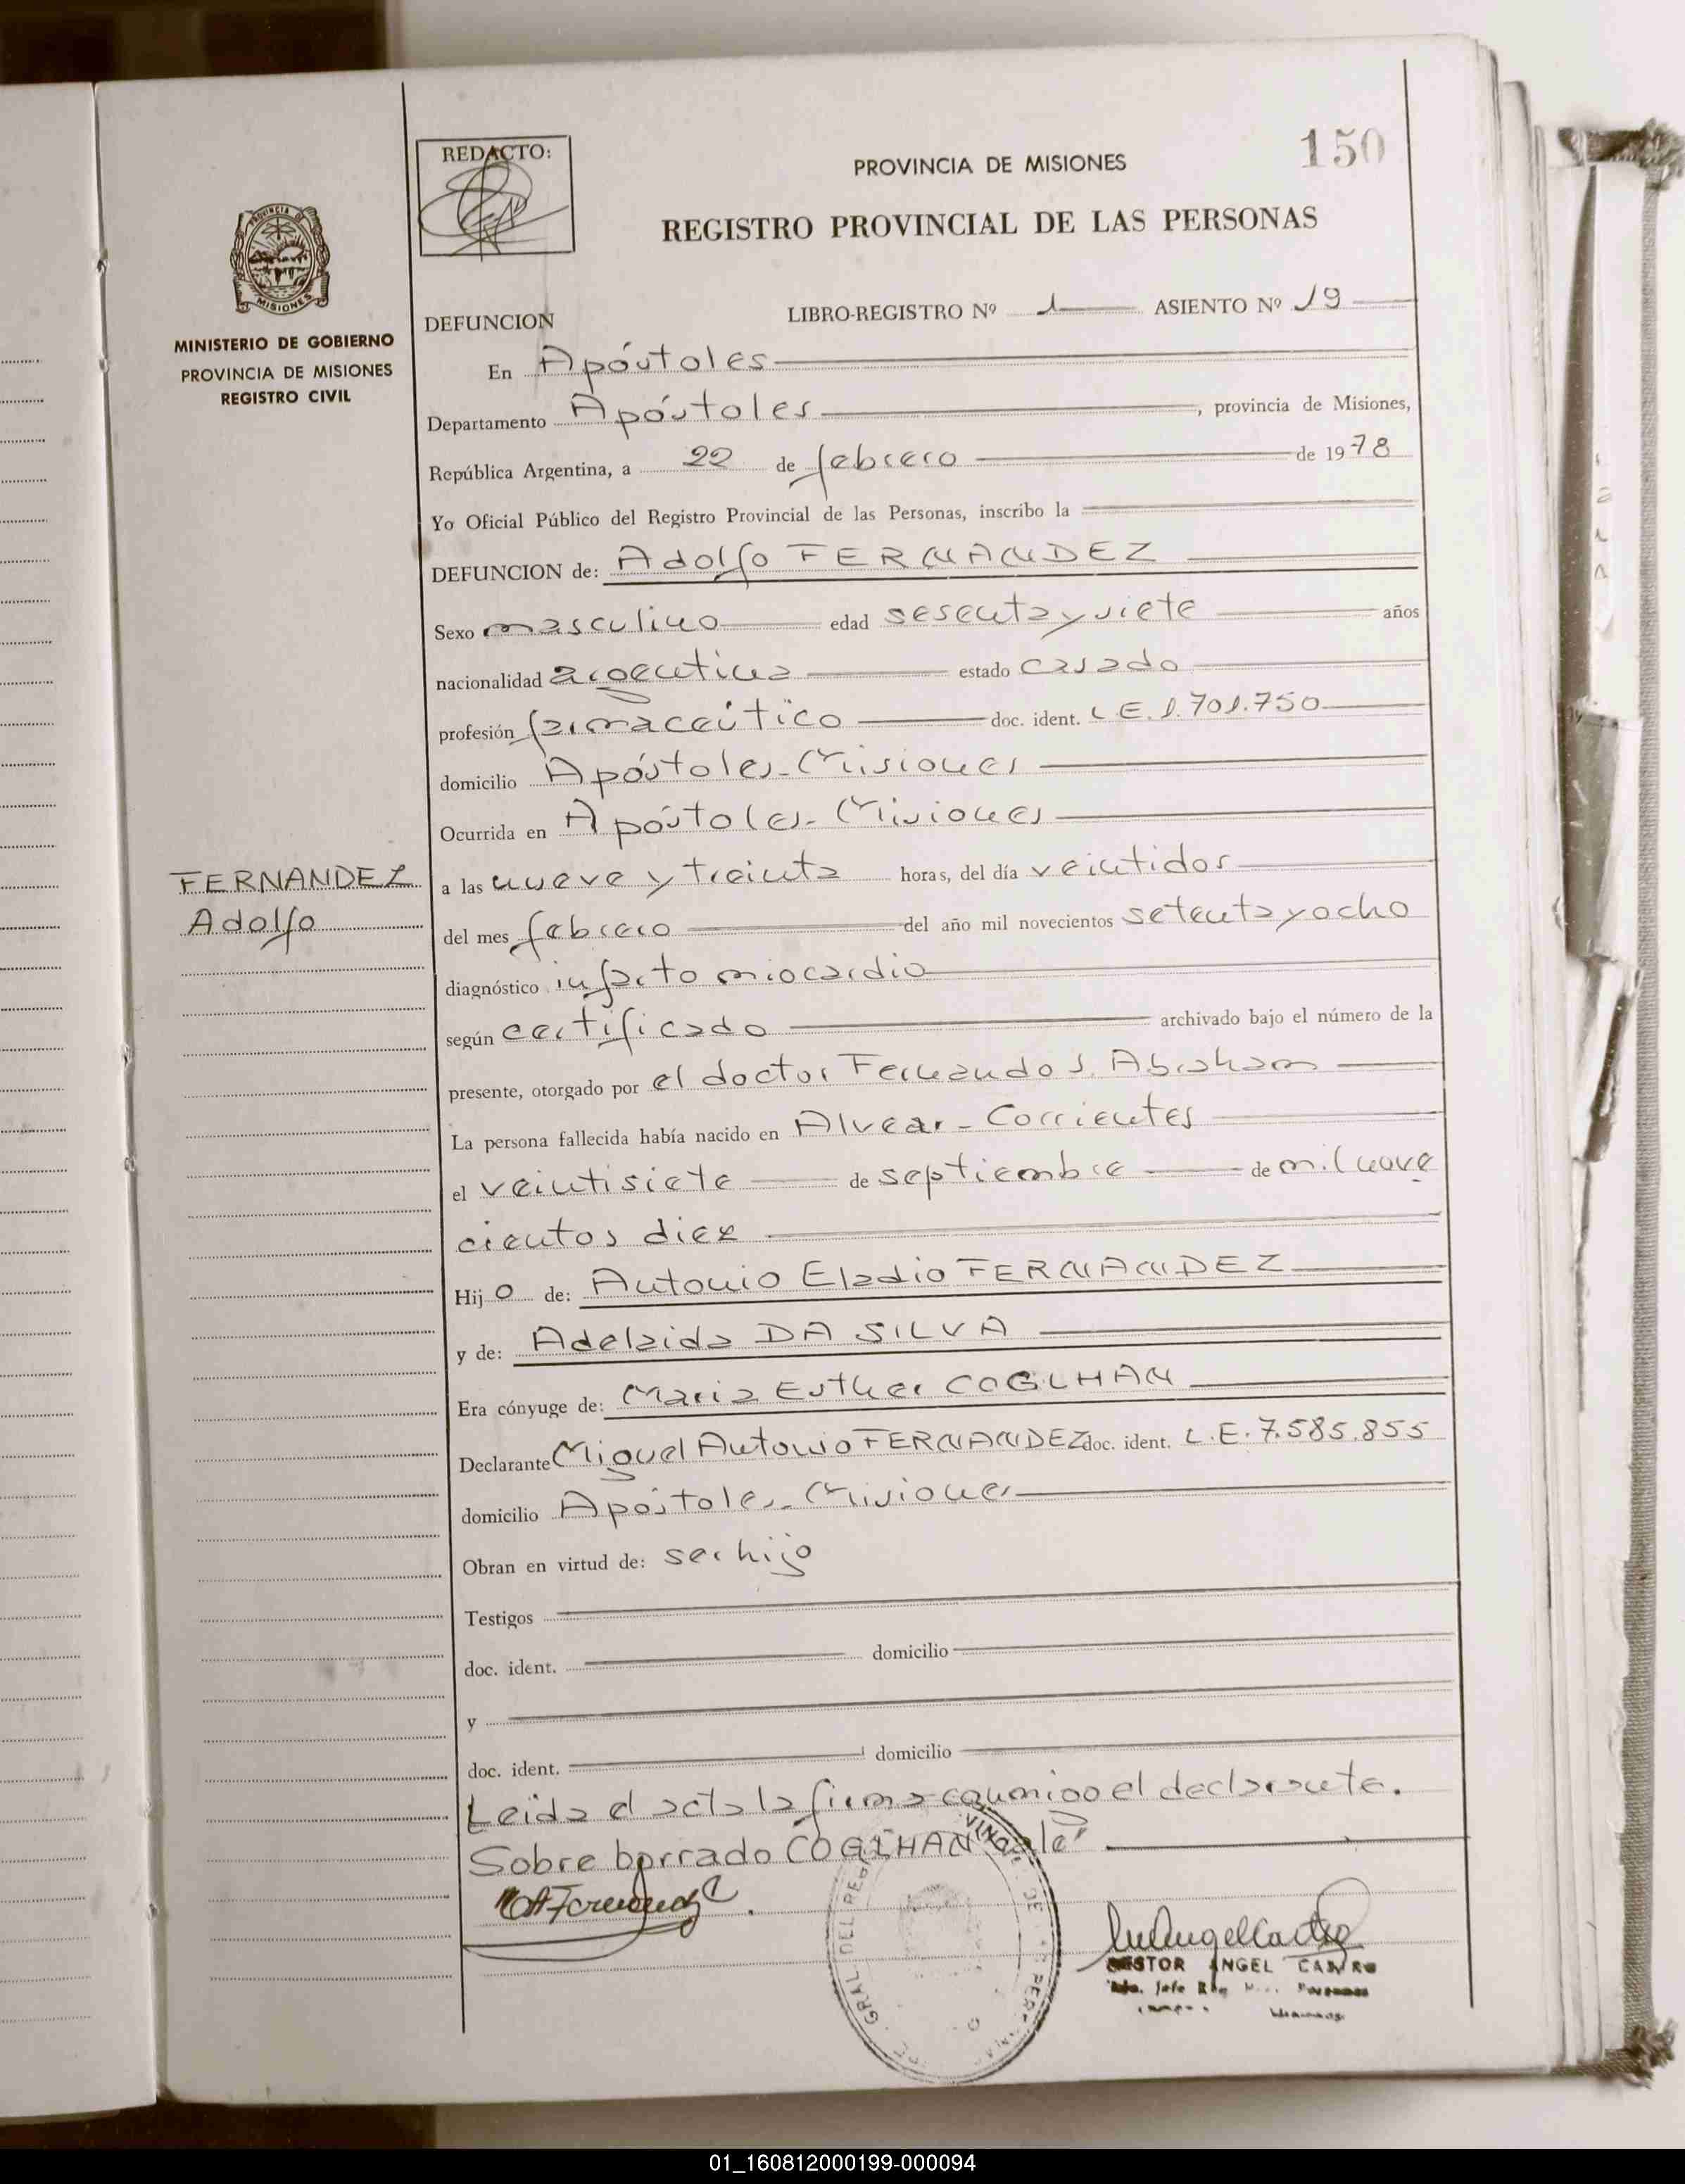 150
REDACTO:
PROVINCIA DE MISIONES
REGISTRO PROVINCIAL DE LAS PERSONAS
PROVINCIA DE
MISIONES
MINISTERIO DE GOBIERNO
PROVINCIA DE MISIONES
REGISTRO CIVIL
DEFUNCION LIBRO-REGISTRO Nº 1 ASIENTO Nº 19
En Apóstoles
Departamento Apóstoles, provincia de Misiones,
República Argentina, a 22 de febrero de 1978
Yo Oficial Público del Registro Provincial de las Personas, inscribo la
DEFUNCION de: Adolfo FERNANDEZ
Sexo masculino edad sesenta y siete años
nacionalidad argentina estado casado
profesión farmaceútico doc. ident. L.E. 1.701.750
domicilio Apóstoles-Misiones
Ocurrida en Apóstoles-Misiones
FERNANDEZ
Adolfo
a las nueve y treinta horas, del día veintidos
del mes febrero del año mil novecientos setenta y ocho
diagnóstico infarto miocardio
según certificado archivado bajo el número de la
presente, otorgado por el doctor Fernando J. Abraham
La persona fallecida había nacido en Alvear-Corrientes
el veintisiete de septiembre de mil nove
cientos diez
Hijo de: Antonio Eladio FERNANDEZ
y de: Adelaida DA SILVA
Era cónyuge de: Maria Esther COGLHAN
Declarante Miguel Antonio FERNANDEZ doc. ident. L.E. 7.585.855
domicilio Apóstoles-Misiones
Obran en virtud de: ser hijo
Testigos
doc. ident. domicilio
y
doc. ident. domicilio
Leida el acta la firma conmigo el declarante.
Sobre borrado COGLHAN vale
NESTOR ANGEL CASTRO
01_160812000199-000094